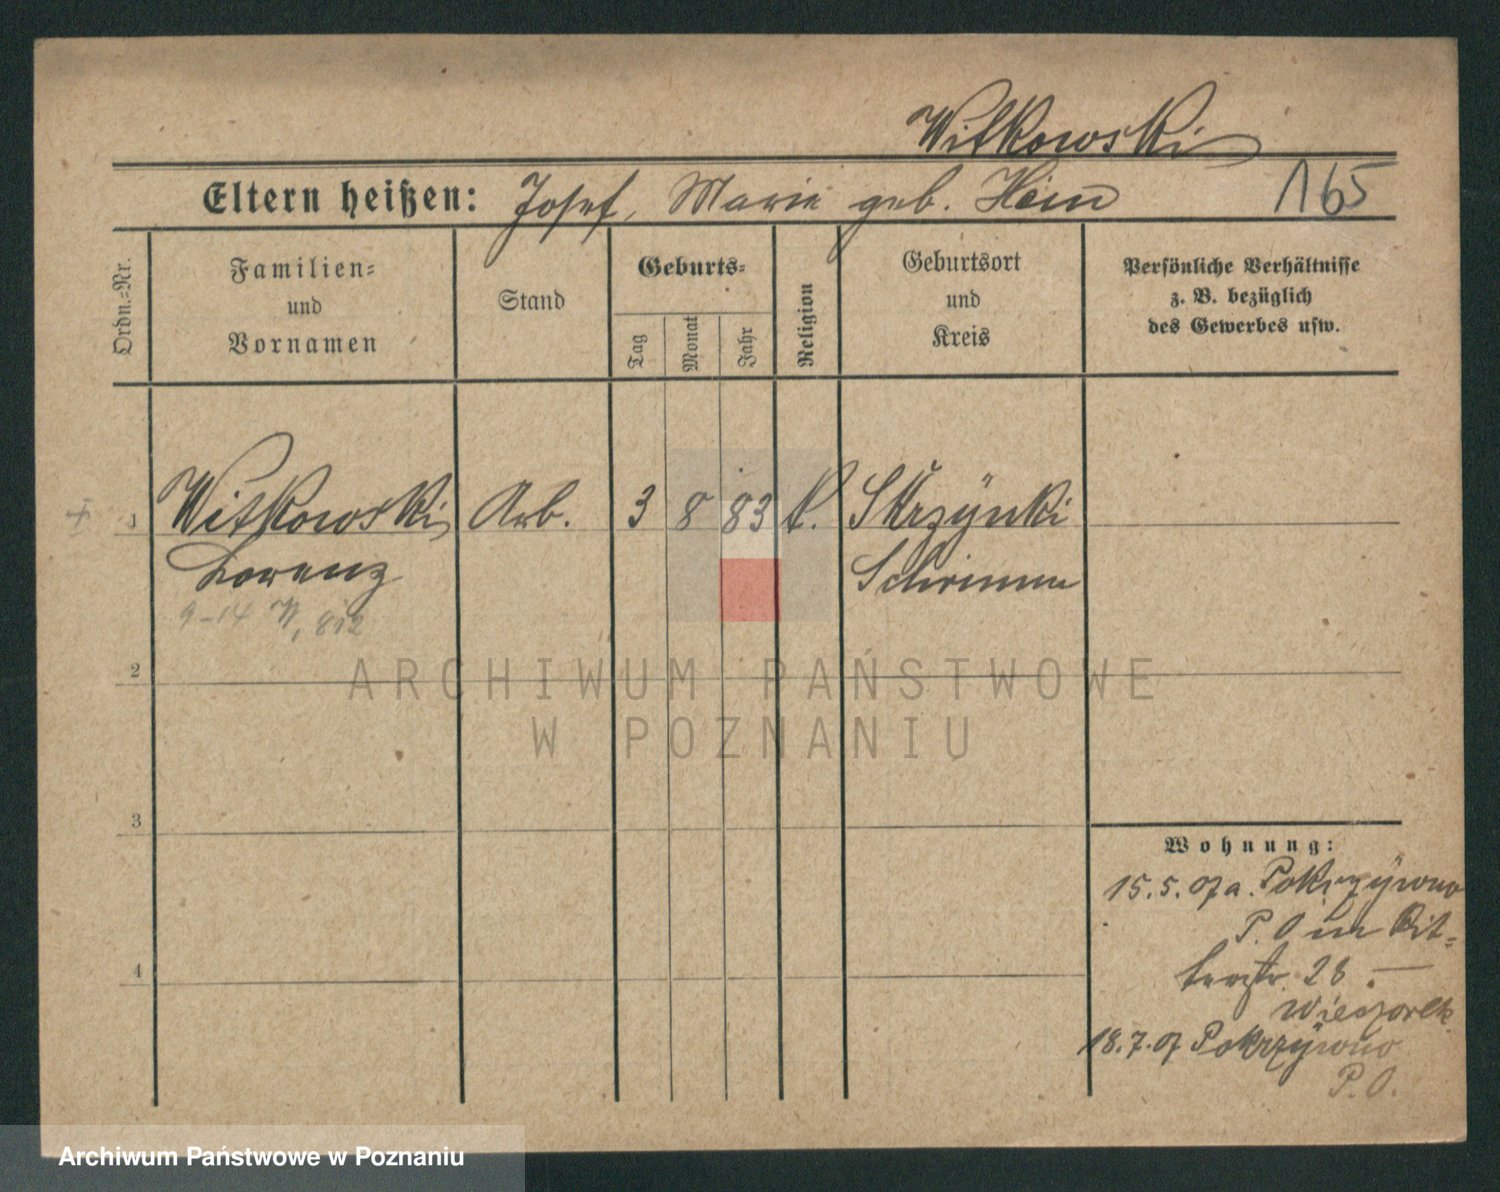 Witkowski
Eltern heißen: Josef, Marie geb. Hein
165
Ordn.=Nr.
Familien= und Vornamen
Stand
Geburts=
Tag
Monat
Jahr
Religion
Geburtsort und Kreis
Persönliche Verhältnisse
z. B. bezüglich
des Gewerbes usw.
+ 1 Witkowski Arb. 3 8 83 k. Skrzynki
Lorenz Schrimm
9-14 N, 812
2
ARCHIWUM PAŃSTWOWE
W POZNANIU
3
Wohnung:
15.5.07 a. Pokrzywno
P. O in Rit=
terstr. 28.
Wieczorek
18.7.07 Pokrzywno
P. O.
4
Archiwum Państwowe w Poznaniu